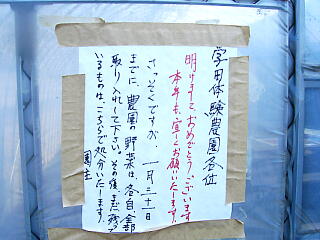 学用体験農園各位
明けまして、おめでとうございます
本年も、宜しくお願いいたします。
さっそくですが、一月三十一日
までに、農園の野菜は、各自、全部
取り入れして下さい。その後、まだ残って
いるものは、こちらで処分いたします。
園主